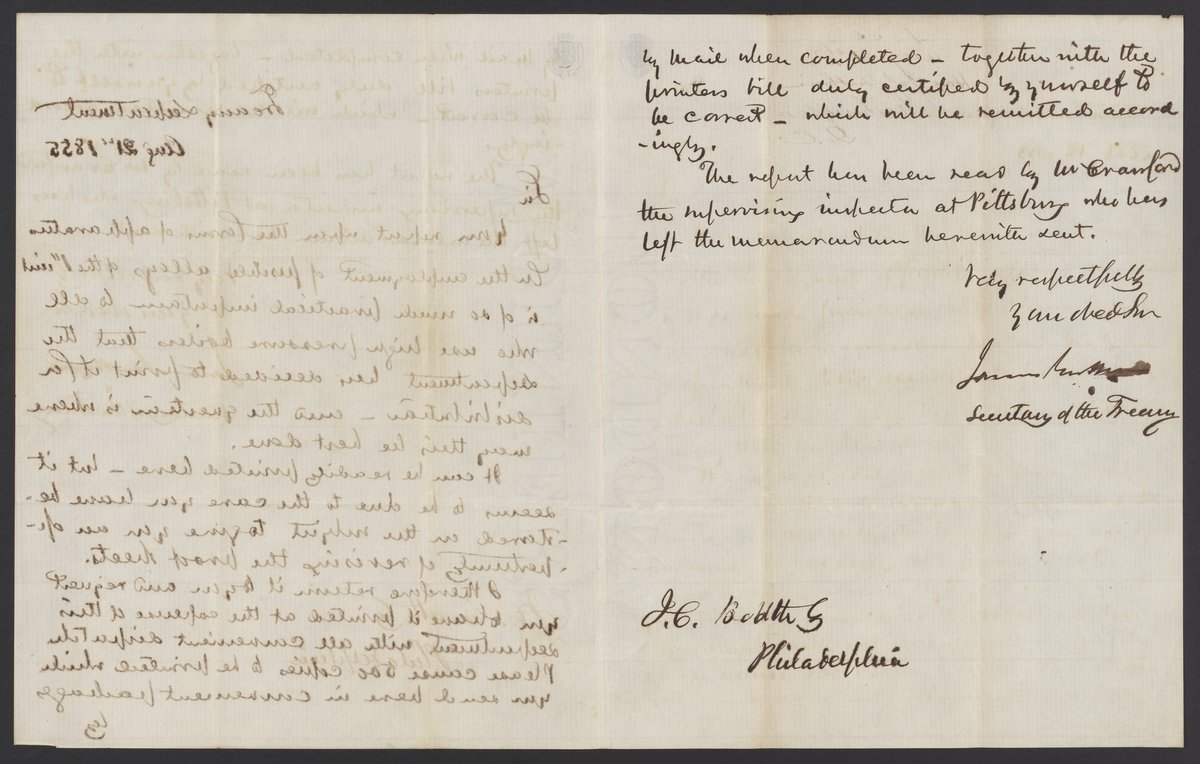 Treasury Department
Aug 21st 1855
Sir
Your report upon the forms of apparatus
in the employment of fusible alloys of the 1st inst
is of so much practical importance to all
who use high pressure boilers that the
department has decided to print it for
distribution – and the question is where
may this be best done.
It can be readily printed here – but it
seems to be due to the care you have be-
-stowed on the subject to give you an op-
-portunity of revising the proof sheets.
I therefore return it to you and request
you to have it printed at the expense of this
department with all convenient dispatch
Please cause 500 copies to be printed which
you send here in convenient packages
by
by mail when completed – together with the
printers bill duly certified by yourself to
be correct – which will be remitted accord
-ingly.
The report has been read by Mr Crawford
the supervising inspector at Pittsburg who has
left the memorandum herewith sent.
Very respectfully
Your obed Sir
James Guthrie
Secretary of the Treasury
J. C. Booth Esq
Philadelphia